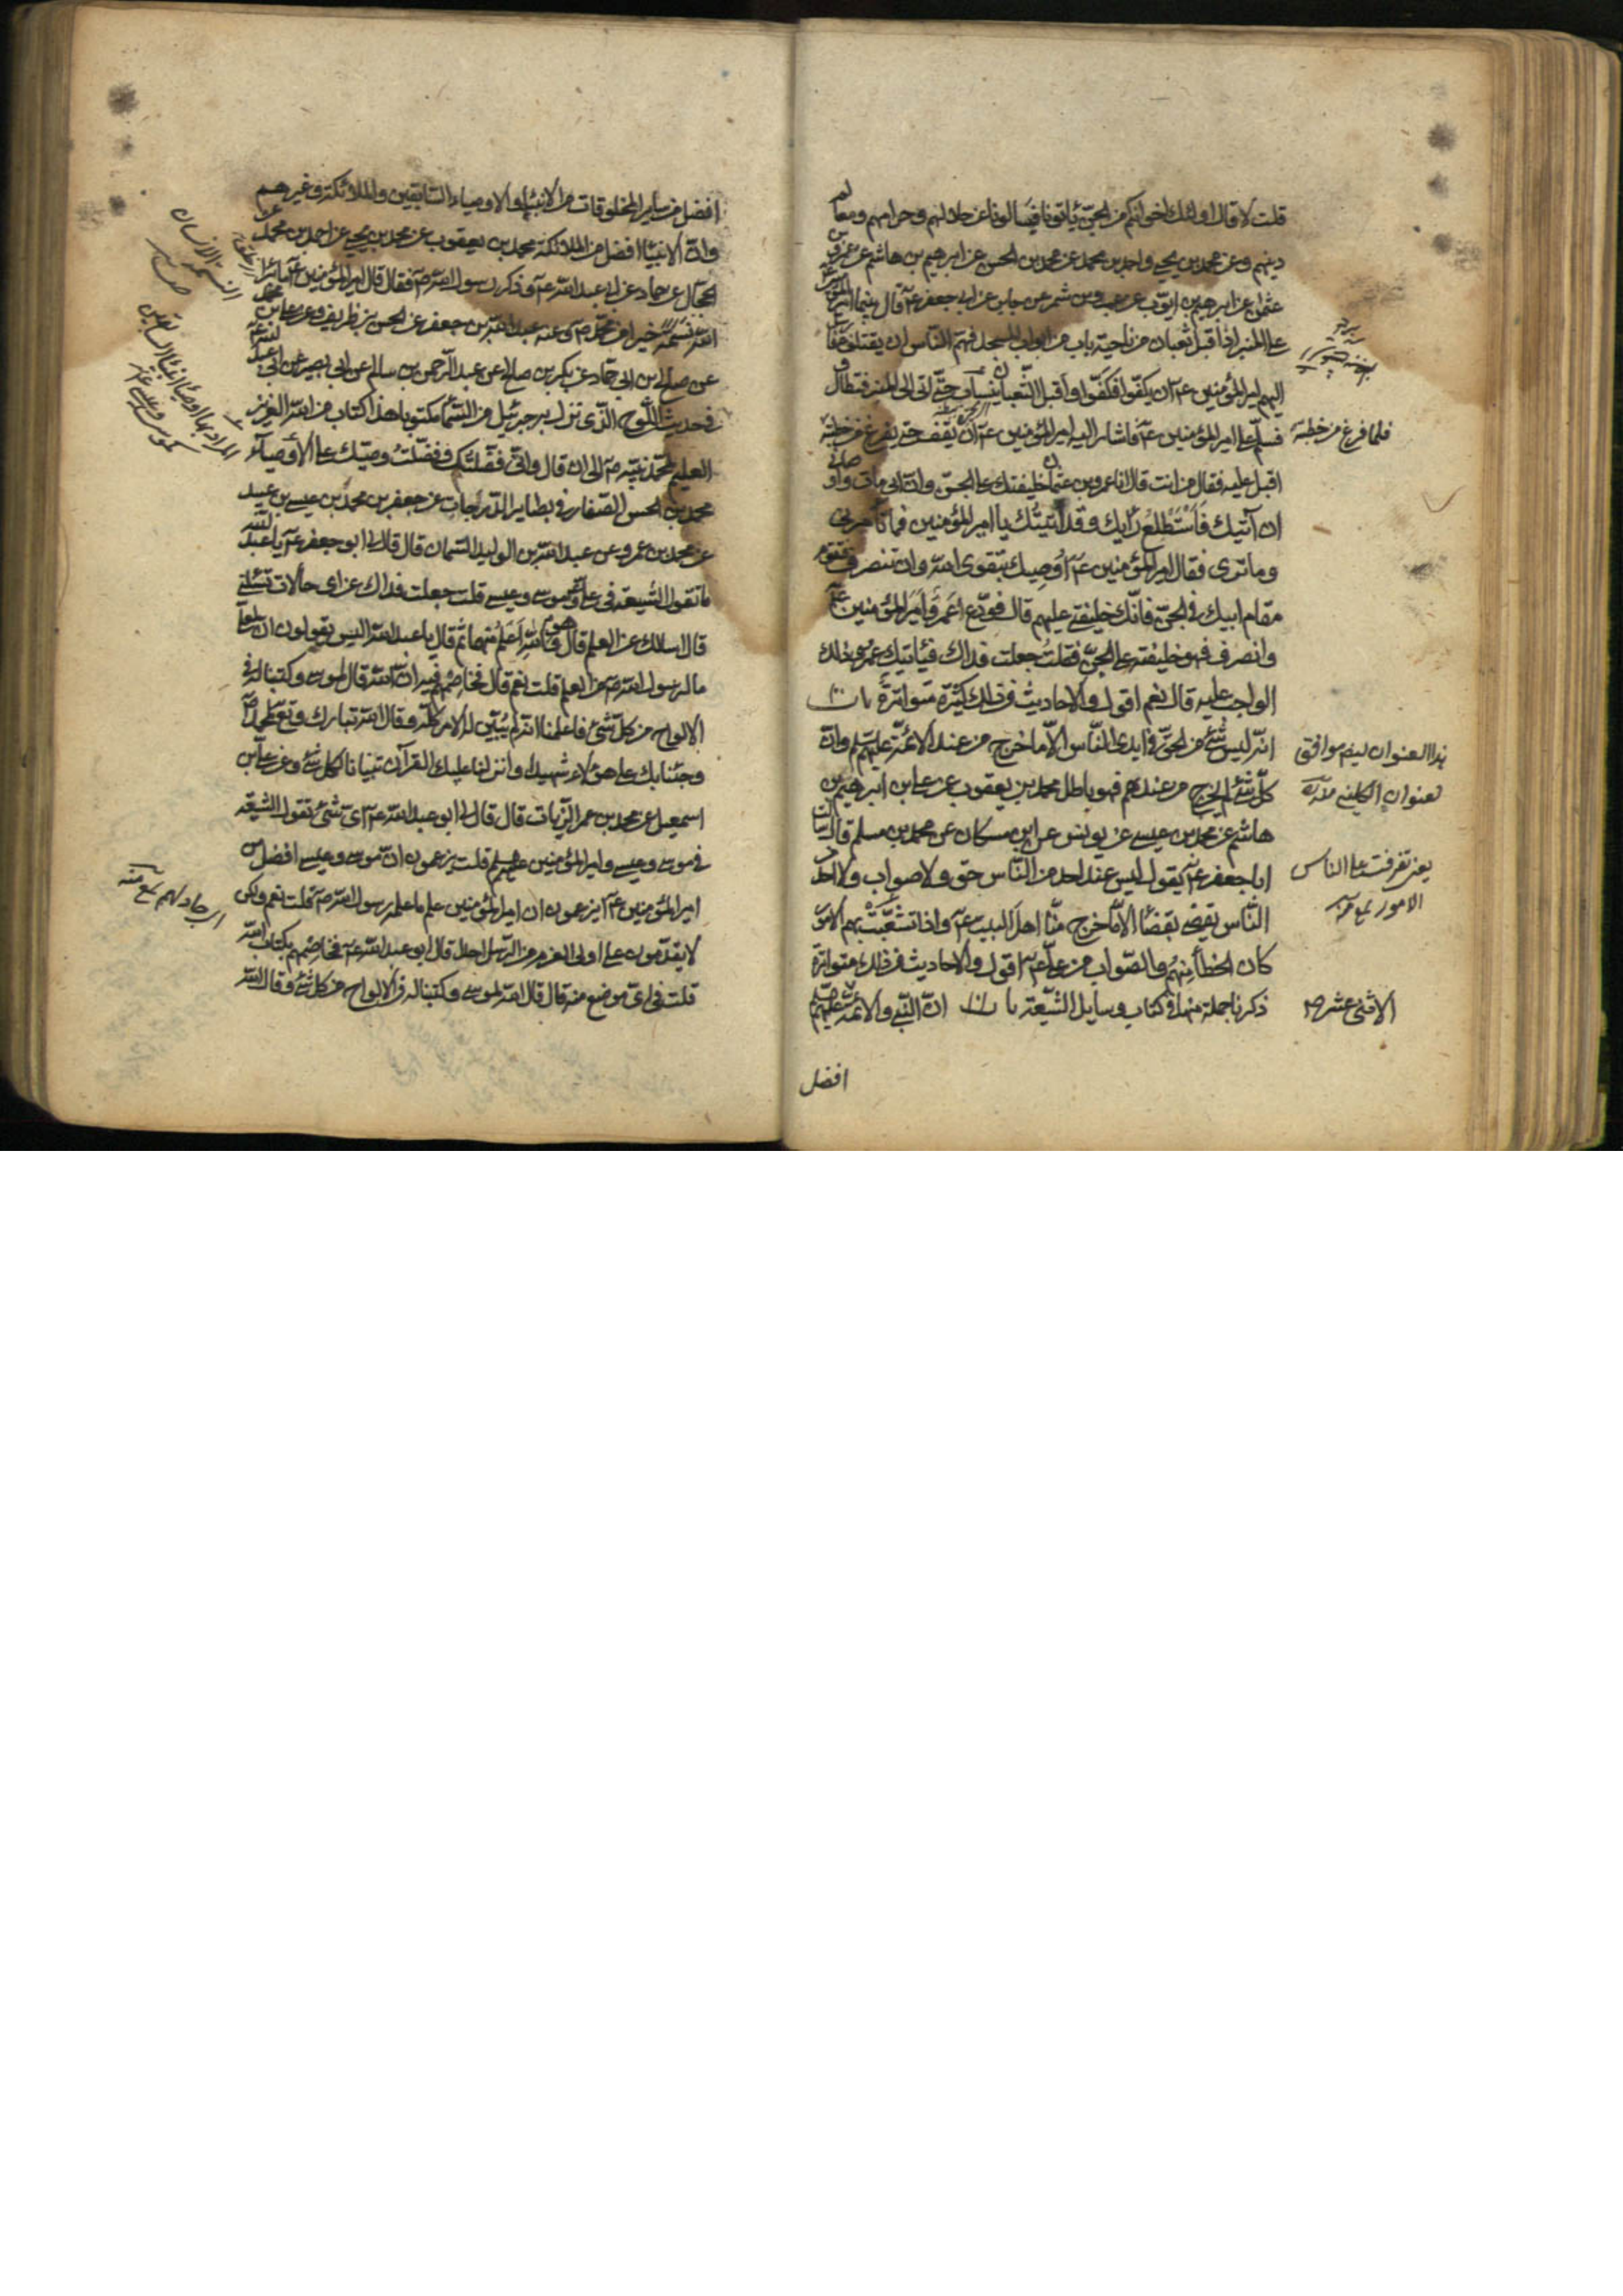 قلت لا قال اولئك اخوانكم من الجن ياتونا فيسالونا عن حلالهم وحرامهم ومعالم
دينهم وعن محمد بن يحيى واحمد بن محمد عن محمد بن الحسن عن ابرهيم بن هاشم عن عمرو بن
عثمن عن ابرهيم بن ايوب عن عمرو بن شمر عن جابر عن ابي جعفر عـ قال بينما امير المؤمنين
على المنبر اذ اقبل ثعبان من ناحية باب من ابواب المسجد فهم الناس ان يقتلوه فارسل
اليهم امير المؤمنين عـ ان يكفوا فكفوا واقبل الثعبان ينساب حتى اتى الى المنبر فتطاول
فسلم على امير المؤمنين عـ فاشار اليه امير المؤمنين عـ ان يقف حتى يفرغ من خطبته
فلما فرغ من خطبته
اقبل عليه فقال من انت قال انا عمرو بن عثمان خليفتك على الجن وان ابي مات واوصاني
ان آتيك فاستطلع رايك وقد اتيتك يا امير المؤمنين فما تأمرني
وما ترى فقال امير المؤمنين عـ اوصيك بتقوى الله وان تنصرف فتقوم
مقام ابيك في الجن فانك خليفتي عليهم قال فودع عمرو امير المؤمنين عـ
وانصرف فهو خليفته على الجن فقلت جعلت فداك فيأتيك عمرو وذلك
الواجب عليه قال نعم اقول والاحاديث في ذلك كثيرة متواترة باب
انه ليس شئ من الحق في ايدى الناس الا ما خرج من عند الائمة عليهم السلم وان
هذا العنوان ليس موافق
كل شئ لم يخرج من عندهم فهو باطل محمد بن يعقوب عن على بن ابرهيم بن
لعنوان الكليني
هاشم عن محمد بن عيسى عن يونس عن ابن مسكان عن محمد بن مسلم قال سمعت
ابا جعفر عـ يقول ليس عند احد من الناس حق ولا صواب ولا احد من
يعني تفرقت على الناس
الناس يقضي بقضاء الا ما خرج منا اهل البيت عـ واذا تشعبت بهم الامور
الامور
كان الخطأ منهم والصواب من على عـ اقول والاحاديث في ذلك متواترة
ذكرنا جملة منها في كتاب وسايل الشيعة باب ان النبي والائمة
الاثنى عشر
افضل
افضل من ساير المخلوقات من الانبياء والاوصياء السابقين والملائكة وغيرهم
وان الانبياء افضل من الملائكة محمد بن يعقوب عن محمد بن يحيى عن احمد بن محمد عن
الحجال عن حماد عن ابي عبد الله عـ وذكر رسول الله صـ فقال قال امير المؤمنين عـ ما برأ
الله نسمة خيرا من محمد صـ وعنه عن عبد الله بن جعفر عن الحسن بن ظريف وعن على بن محمد
عن صالح بن ابي حماد عن بكر بن صالح عن عبد الرحمن بن سالم عن ابي بصير عن ابي عبد الله عـ
في حديث اللوح الذى نزل به جبرئيل من السماء مكتوبا هذا كتاب من الله العزيز
العليم لمحمد نبيه صـ الى ان قال واني فضلتك وفضلت وصيك على الأوصياء
محمد بن الحسن الصفار في بصاير الدرجات عن جعفر بن محمد بن عيسى بن عبيد
عن محمد بن عمرو عن عبد الله بن الوليد السمان قال قال لى ابو جعفر عـ يا عبد الله
ما تقول الشيعة في على وموسى وعيسى قلت جعلت فداك عن اى حالات تسئلنى
قال اسالك عن العلم قال هو والله اعلم منهما ثم قال يا عبد الله اليس يقولون ان لعلى
ما لرسول الله صـ من العلم قلت نعم قال فخاصمهم فيه ان الله قال لموسى وكتبنا له في
الالواح من كل شئ فاعلمنا انه لم يبين له الامر كله وقال الله تبارك وتعالى لمحمد
وجئنا بك على هؤلاء شهيدا وانزلنا عليك القرآن تبيانا لكل شئ وعن على بن
اسمعيل عن محمد بن عمر الزيات قال قال لى ابو عبد الله عـ اى شئ تقول الشيعة
في موسى وعيسى وامير المؤمنين عليهم السلم قلت يزعمون ان موسى وعيسى افضل من
امير المؤمنين عـ ايزعمون ان امير المؤمنين علم ما علم رسول الله صـ قلت نعم ولكن
اى جادلهم منه
لا يقدمون على اولى العزم من الرسل احدا قال ابو عبد الله عـ فخاصمهم بكتاب الله
قلت في اى موضع منه قال قال الله لموسى وكتبنا له في الالواح من كل شئ وقال الله